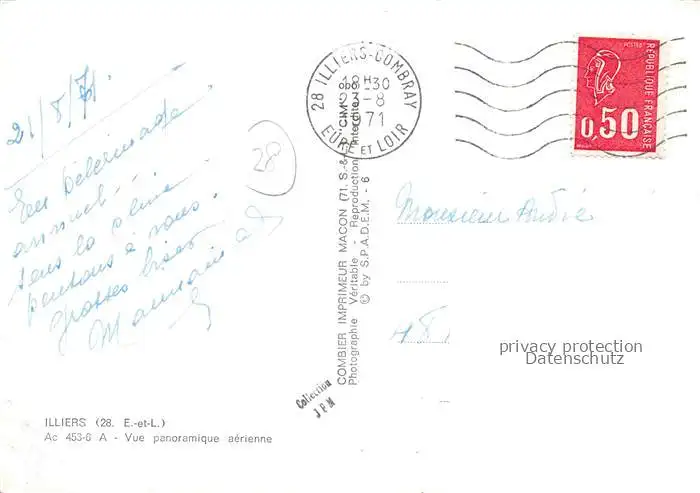 21/8/71.
En pèlerinage
annuel -
sous la pluie
pensons à vous.
grosses bises
28
28 ILLIERS-COMBRAY
18H30
23-8
1971
EURE ET LOIR
POSTES
RÉPUBLIQUE FRANÇAISE
0,50
COMBIER IMPRIMEUR MACON (71, S.-&-L.) "CIM"
Photographie Véritable - Reproduction Interdite
© by S.P.A.D.E.M. - 6
Monsieur André
78
privacy protection
Datenschutz
Collection
JPM
ILLIERS (28. E.-et-L.)
Ac 453-6 A - Vue panoramique aérienne